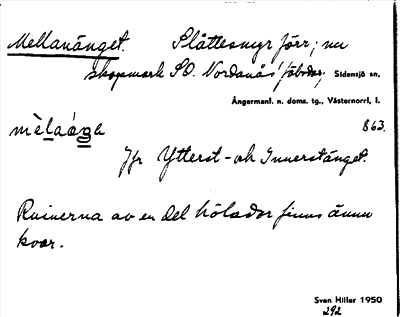 Mellanänget. Slåttesmyr förr; nu
skogsmark SO. Nordanås' fäbodar, Sidensjö sn,
Ångermanl. n. doms. tg., Västernorrl. l.
mèlaáŋa 863.
Jfr Ytterst- och Innerstänget.
Ruinerna av en del hölador finns ännu
kvar.
Sven Hiller 1950
292